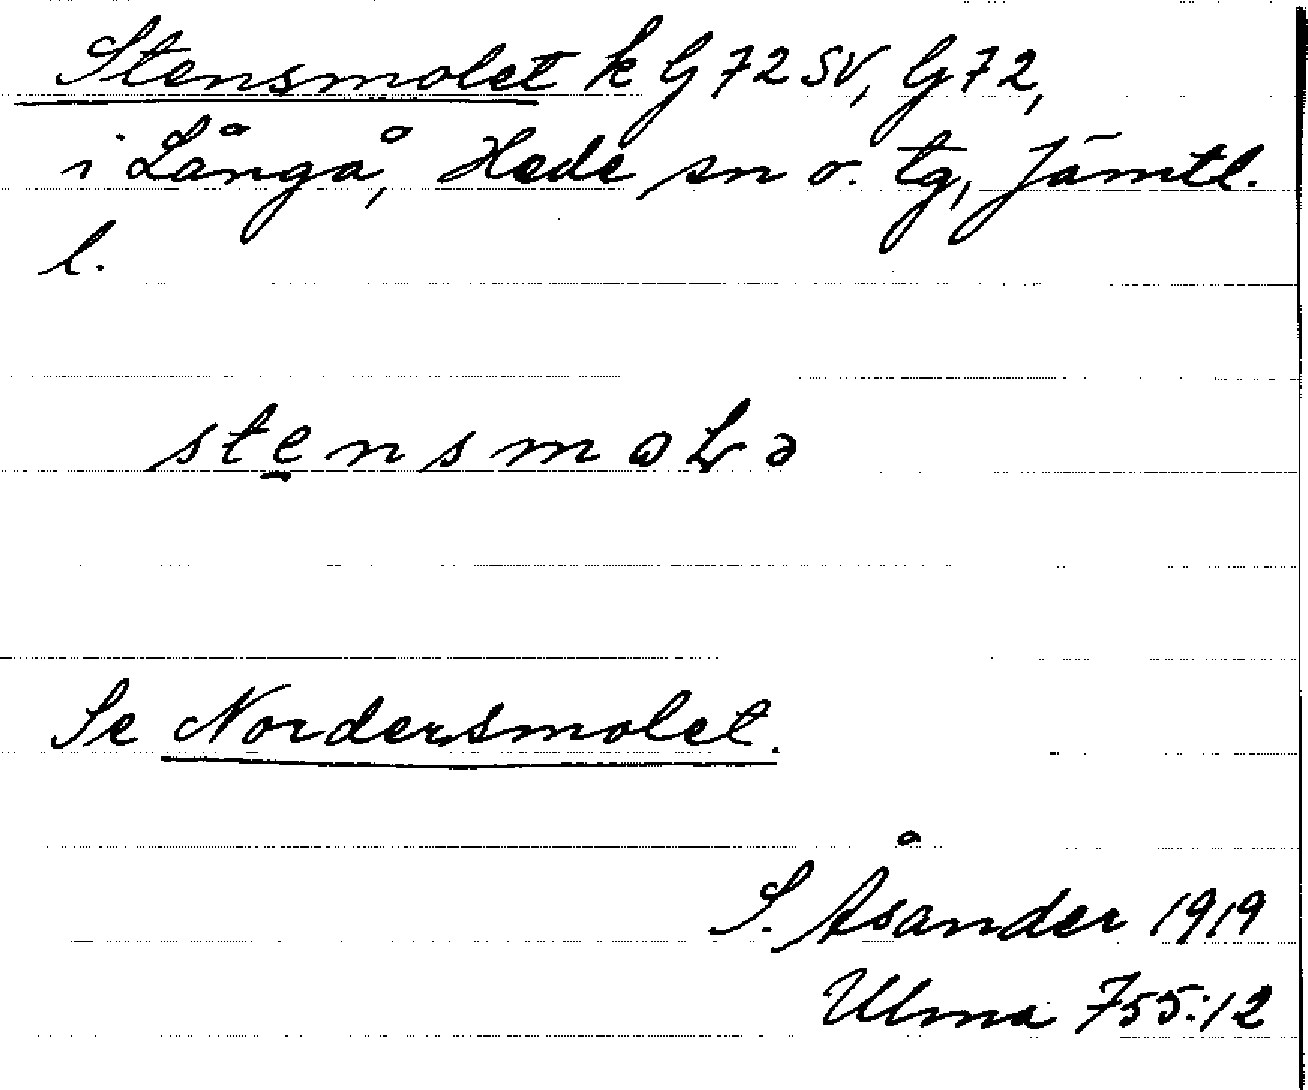 Stensmolet k G 72 SV, G 72,
i Långå, Hede sn o. tg, Jämtl.
l.
Se Nordersmolet.
S. Åsander 1919
Ulma 755:12